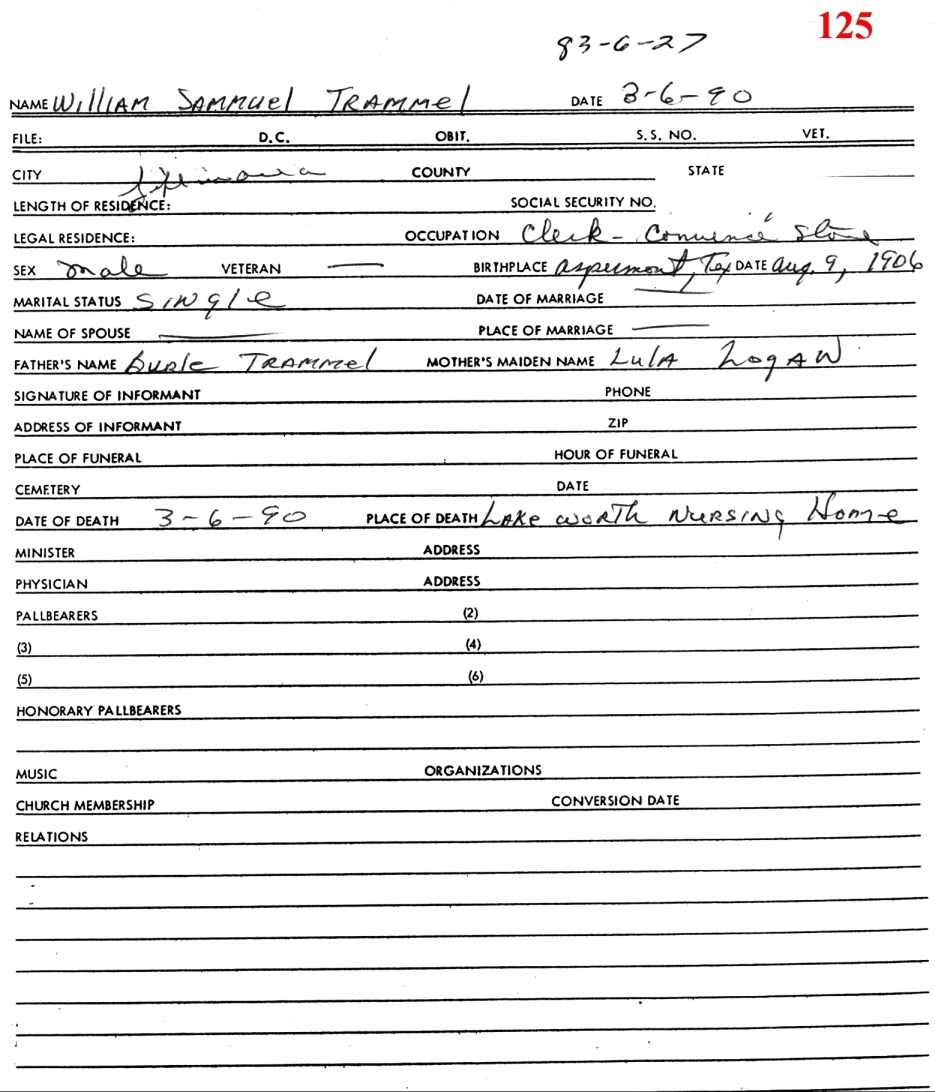 125
83-6-27
NAME William Sammuel Trammel DATE 3-6-90
FILE: D.C. OBIT. S.S. NO. VET.
CITY COUNTY STATE
LENGTH OF RESIDENCE: SOCIAL SECURITY NO.
LEGAL RESIDENCE: OCCUPATION Clerk - Convence Store
SEX male VETERAN — BIRTHPLACE Aspermont, Tex DATE Aug. 9, 1906
MARITAL STATUS Single DATE OF MARRIAGE —
NAME OF SPOUSE — PLACE OF MARRIAGE —
FATHER'S NAME Burle Trammel MOTHER'S MAIDEN NAME Lula Logan
SIGNATURE OF INFORMANT PHONE
ADDRESS OF INFORMANT ZIP
PLACE OF FUNERAL HOUR OF FUNERAL
CEMETERY DATE
DATE OF DEATH 3-6-90 PLACE OF DEATH Lake Worth Nursing Home
MINISTER ADDRESS
PHYSICIAN ADDRESS
PALLBEARERS (2)
(3) (4)
(5) (6)
HONORARY PALLBEARERS
MUSIC ORGANIZATIONS
CHURCH MEMBERSHIP CONVERSION DATE
RELATIONS